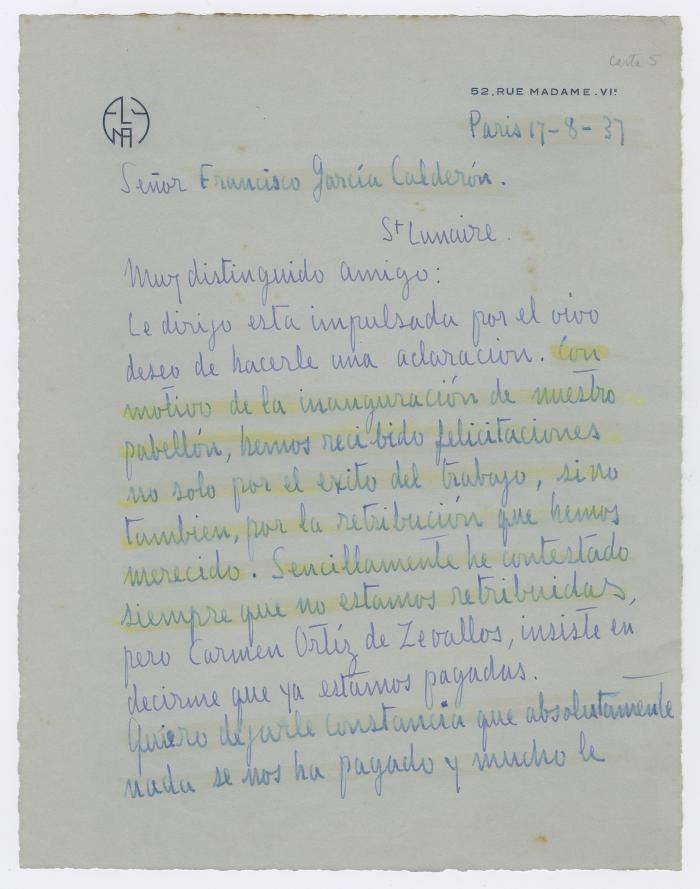 Carta 5
52, RUE MADAME. VIe
ELENA
Paris 17-8-37
Señor Francisco García Calderón.
St Lunaire.
Muy distinguido amigo:
Le dirijo esta impulsada por el vivo
deseo de hacerle una aclaracion. Con
motivo de la inauguración de nuestro
pabellón, hemos recibido felicitaciones
no solo por el exito del trabajo, sino
tambien, por la retribución que hemos
merecido. Sencillamente he contestado
siempre que no estamos retribuidas,
pero Carmen Ortíz de Zevallos, insiste en
decirme que ya estamos pagadas.
Quiero dejarle constancia que absolutamente
nada se nos ha pagado y mucho le